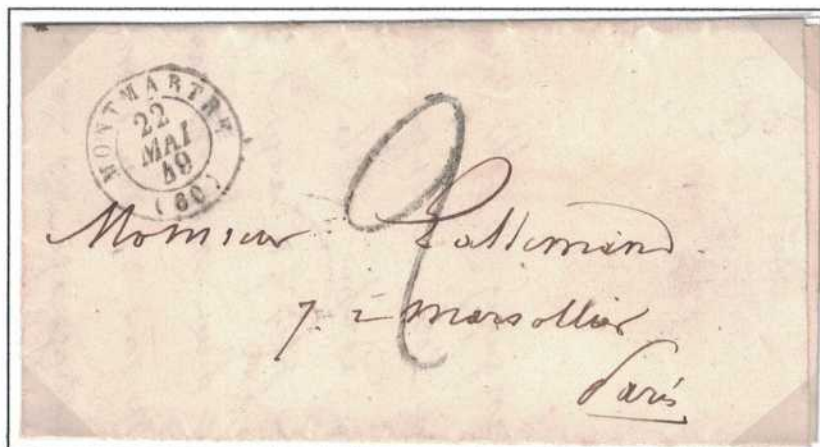 MONTMARTRE
22
MAI
49
(60)
2
Monsieur Lallemand
7. r Marsollier
Paris